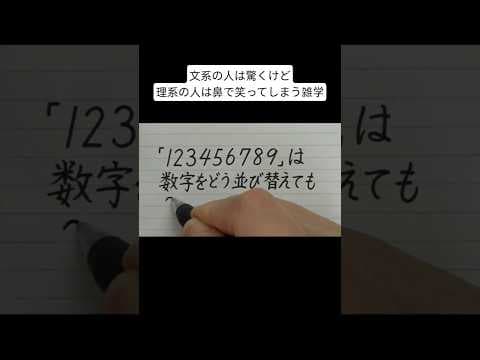 文系の人は驚くけど
理系の人は鼻で笑ってしまう雑学
「123456789」は
数字をどう並び替えても